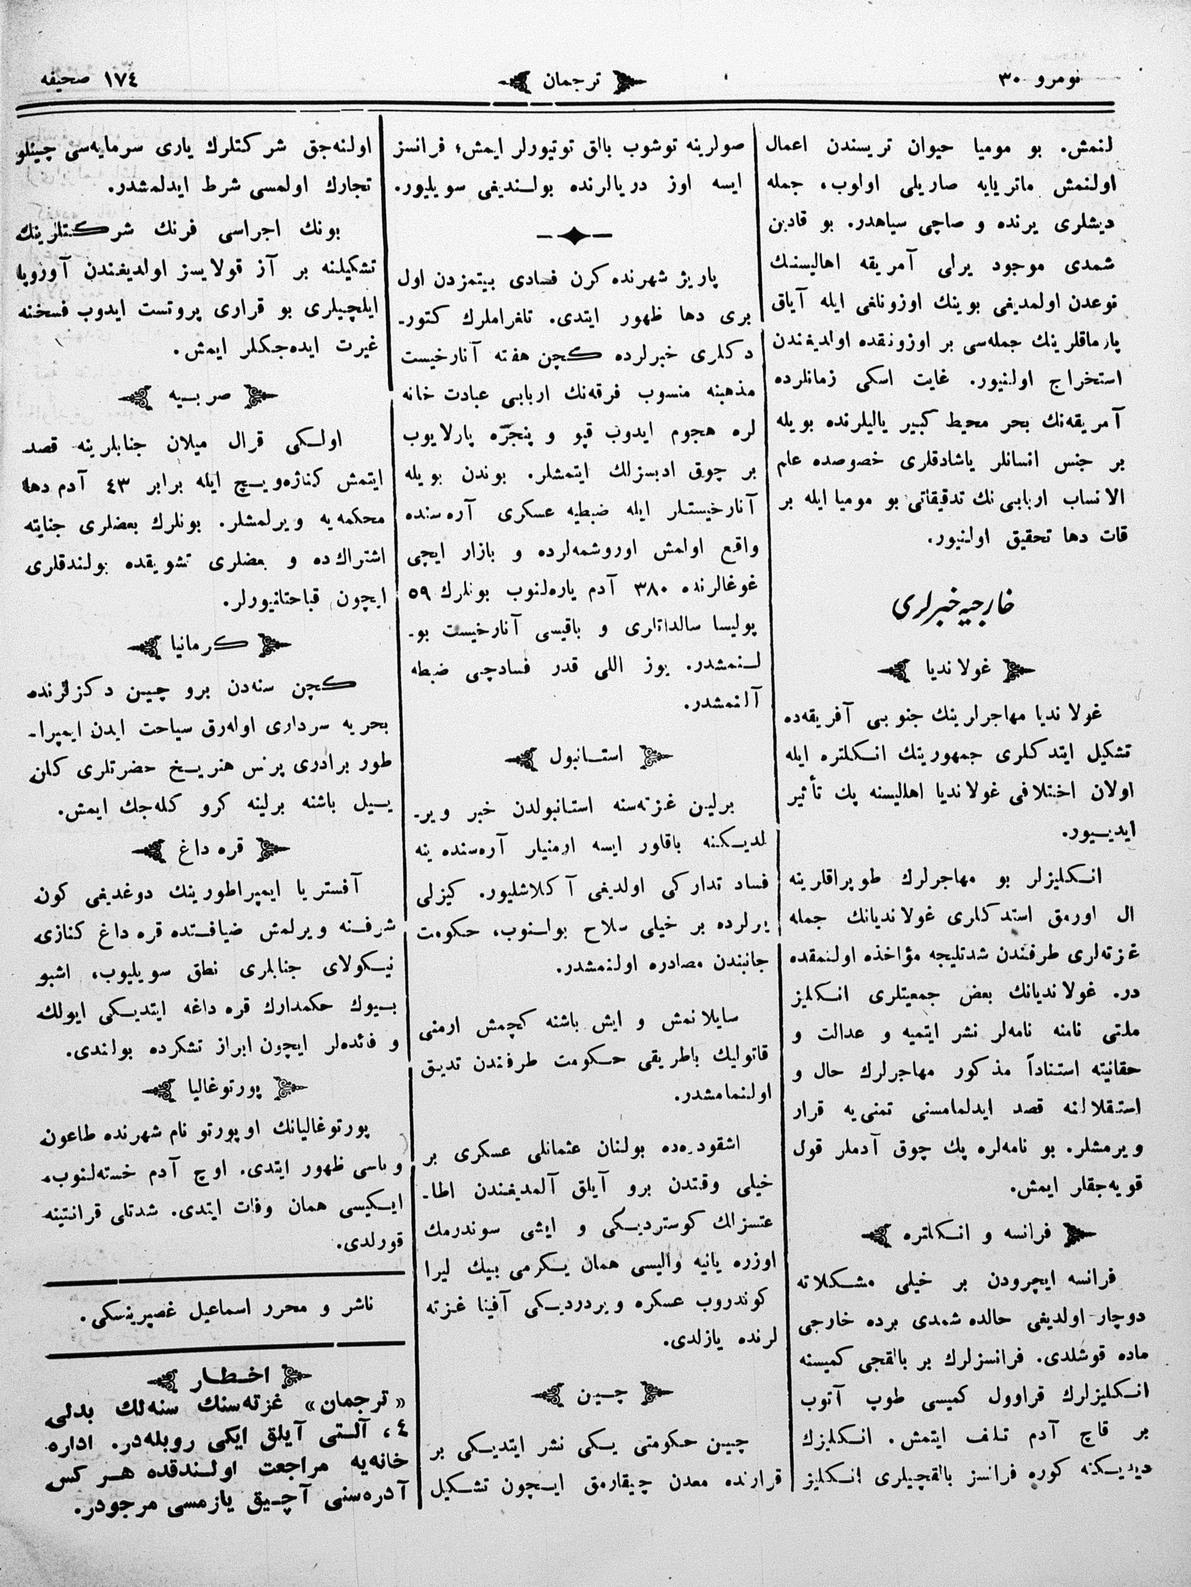 نومرو ٣٠
ترجمان
١٧٤ صحيفه
لنمش. بو موميا حيوان تريسندن اعمال
اولنمش ماتريايه صاريلى اولوب، جمله
ديشلرى يرنده و صاچى سياهدر. بو قادين
شمدى موجود يرلى آمريقه اهاليسنك
نوعدن اولمديغى بوينك اوزونلغى ايله آياق
پارماقلرينك جمله‌سى بر اوزونقده اولديغندن
استخراج اولنيور. غايت اسكى زمانلرده
آمريقه‌نك بحر محيط كبير ياليلرنده بويله
بر جنس انسانلر ياشادقلرى خصوصده علم
الانساب اربابى‌نك تدقيقاتى بو موميا ايله بر
قات دها تحقيق اولنيور.
خارجيه خبرلرى
غولانديا
غولانديا مهاجرلرينك جنوبى آفريقه‌ده
تشكيل ايتدكلرى جمهورينك انكلتره ايله
اولان اختلافى غولانديا اهاليسنه پك تأثير
ايديـيور.
انكليزلر بو مهاجرلرك طوپراقلرينه
ال اورمق استدكلرى غولانديانك جمله
غزته‌لرى طرفندن شدتليجه مؤاخذه اولنمقده
در. غولانديانك بعض جمعيتلرى انكليز
ملتى نامنه نامه‌لر نشر ايتميه و عدالت و
حقانيته استناداً مذكور مهاجرلرك حال و
استقلالنه قصد ايدلمامسنى تمنى‌يه قرار
ويرمشلر. بو نامه‌لره پك چوق آدملر قول
قويه‌جقلر ايمش.
فرانسه و انكلتره
فرانسه ايچرودن بر خيلى مشكلاته
دوچار اولديغى حالده شمدى برده خارجى
ماده قوشلدى. فرانسزلرك بر بالقجى كميسنه
انكليزلرك قراوول كميسى طوپ آتوب
بر قاچ آدم تلف ايتمش. انكليزك
ديديكنه كوره فرانسز بالقچيلرى انكليز
صولرينه توشوب بالق توتيورلر ايمش؛ فرانسز
ايسه اوز دريالرنده بولنديغى سويليور.
پاريژ شهرنده كرن فسادى بيتمزدن اول
برى دها ظهور ايتدى. تلغراملرك كتور-
دكلرى خبرلرده كچن هفته آنارخيست
مذهبنه منسوب فرقه‌نك اربابى عبادت خانه
لره هجوم ايدوب قپو و پنجره پارلايوب
بر چوق ادبسزلك ايتمشلر. بوندن بويله
آنارخيستلر ايله ضبطيه عسكرى آره‌سنده
واقع اولمش اوروشمه‌لرده و بازار ايچى
غوغالرنده ٣٨٠ آدم ياره‌لنوب بونلرك ٥٩
پوليسا سالداتلرى و باقيسى آنارخيست بو-
لنمشدر. يوز اللى قدر فسادچى ضبطه
آلنمشدر.
استانبول
برلين غزته‌سنه استانبولدن خبر وير-
لمديكنه باقاور ايسه ارمنيلر آره‌سنده ينه
فساد تداركى اولديغى آكلاشليور. كيزلى
يرلرده بر خيلى سلاح بولنوب، حكومت
جانبندن مصادره اولنمشدر.
سايلانمش و ايش باشنه كچمش ارمنى
قاتوليك باطريقى حكومت طرفندن تديق
اولنمامشدر.
اشقودره‌ده بولنان عثمانلى عسكرى بر
خيلى وقتدن برو آيلق آلمديغندن اطا-
عتسزلك كوسترديكى و ايشى سوندرمك
اوزره يانيه واليسى همان يكرمى بيك ليرا
كوندروب عسكره ويردرديكى آفينا غزته
لرنده يازلدى.
چين
چين حكومتى يكى نشر ايتديكى بر
قرارنده معدن چيقارمق ايچون تشكيل
اولنه‌جق شركتلرك يارى سرمايه‌سى چينلو
تجارك اولمسى شرط ايدلمشدر.
بونك اجراسى فرنك شركتلرينك
تشكيلنه بر آز قولايسز اولديغندن آوروپا
ايلچيلرى بو قرارى پروتست ايدوب فسخنه
غيرت ايده‌جكلر ايمش.
صربيه
اولكى قرال ميلان جنابلرينه قصد
ايتمش كنازه‌ويچ ايله برابر ٤٣ آدم دها
محكمه‌يه ويرلمشلر. بونلرك بعضلرى جنايته
اشتراك‌ده و بعضلرى تشويقده بولندقلرى
ايچون قباحتلنيورلر.
كرمانيا
كچن سنه‌دن برو چين دكزلرنده
بحريه سردارى اوله‌رق سياحت ايدن ايمپرا-
طور برادرى پرنس هنريخ حضرتلرى كلن
ييل باشنه برلينه كرو كله‌جك ايمش.
قره داغ
آفستريا ايمپراطورينك دوغديغى كون
شرفنه ويرلمش ضيافتده قره داغ كنازى
نيكولاى جنابلرى نطق سويليوب، اشبو
بيوك حكمدارك قره داغه ايتديكى ايولك
و فائده‌لر ايچون ابراز تشكرده بولندى.
پورتوغاليا
پورتوغاليانك اوپورتو نام شهرنده طاعون
وباسى ظهور ايتدى. اوچ آدم خسته‌لنوب،
ايكيسى همان وفات ايتدى. شدتلى قرانتينه
قورلدى.
ناشر و محررى اسماعيل غصپرينسكى.
اخطار
«ترجمان» غزته‌سنك سنه‌لك بدلى
٤، آلتى آيلق ايكى روبله‌در. اداره
خانه‌يه مراجعت اولندقده هر كس
آدره‌سنى آچيق يازمسى مرجودر.